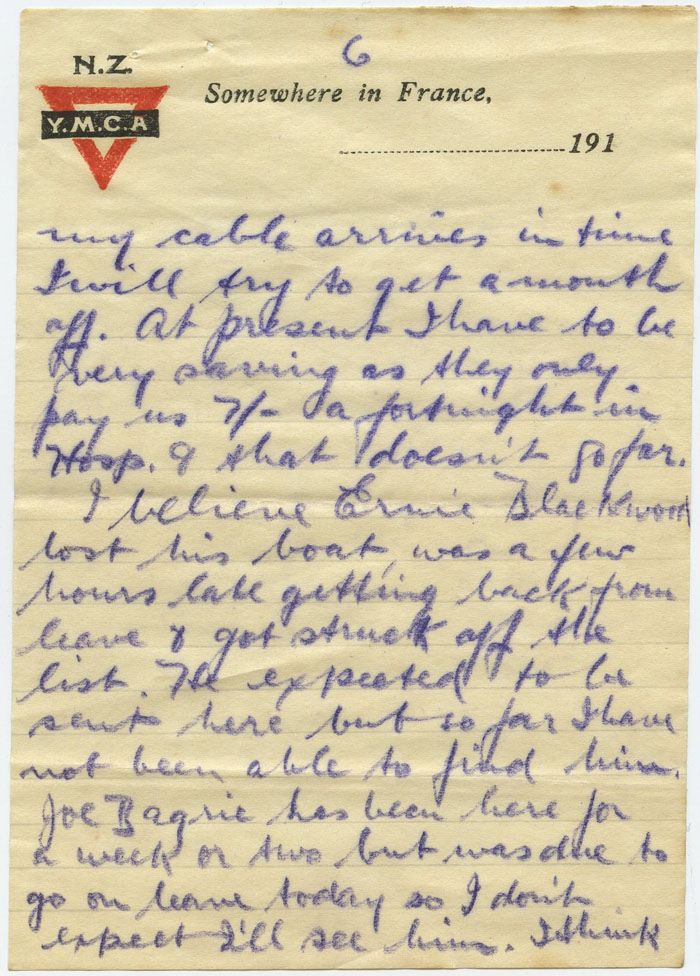 6
N.Z.
Y.M.C.A
Somewhere in France,
191
my cable arrives in time
I will try to get a month
off. At present I have to be
very saving as they only
pay us 7/- a fortnight in
Hosp. & that doesn't go far.
I believe Ernie Blackwood
lost his boat, was a few
hours late getting back from
leave & got struck off the
list. He expected to be
sent here but so far I have
not been able to find him.
Joe Bagrie has been here for
a week or two but was due to
go on leave today so I don't
expect I'll see him. I think